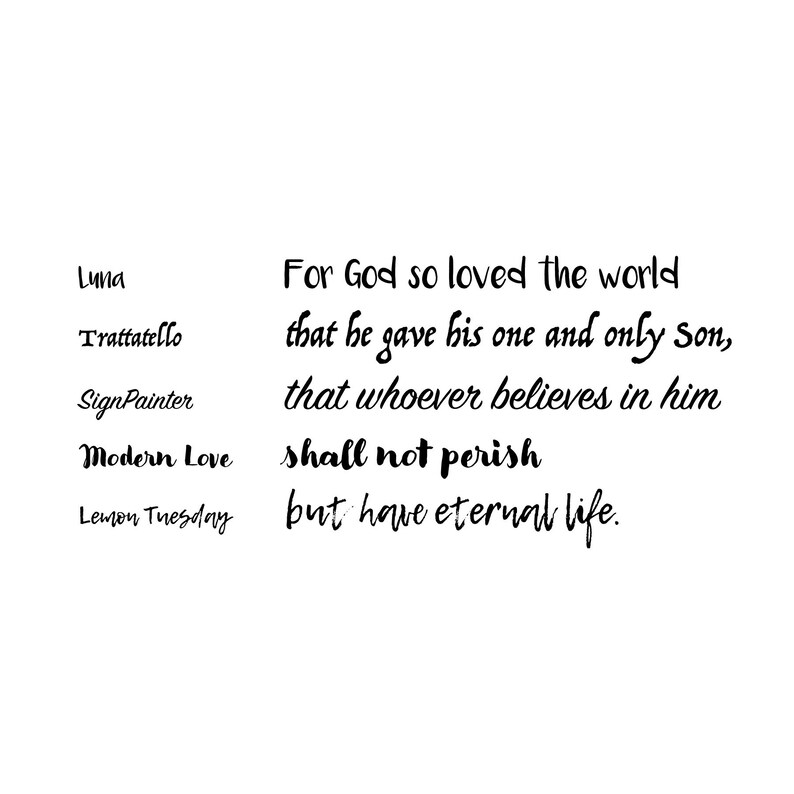 Luna For God so loved the world
Trattatello that he gave his one and only Son,
SignPainter that whoever believes in him
Modern Love shall not perish
Lemon Tuesday but have eternal life.